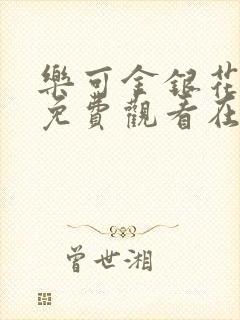 樂可金銀花
免費觀看在
曾世湘